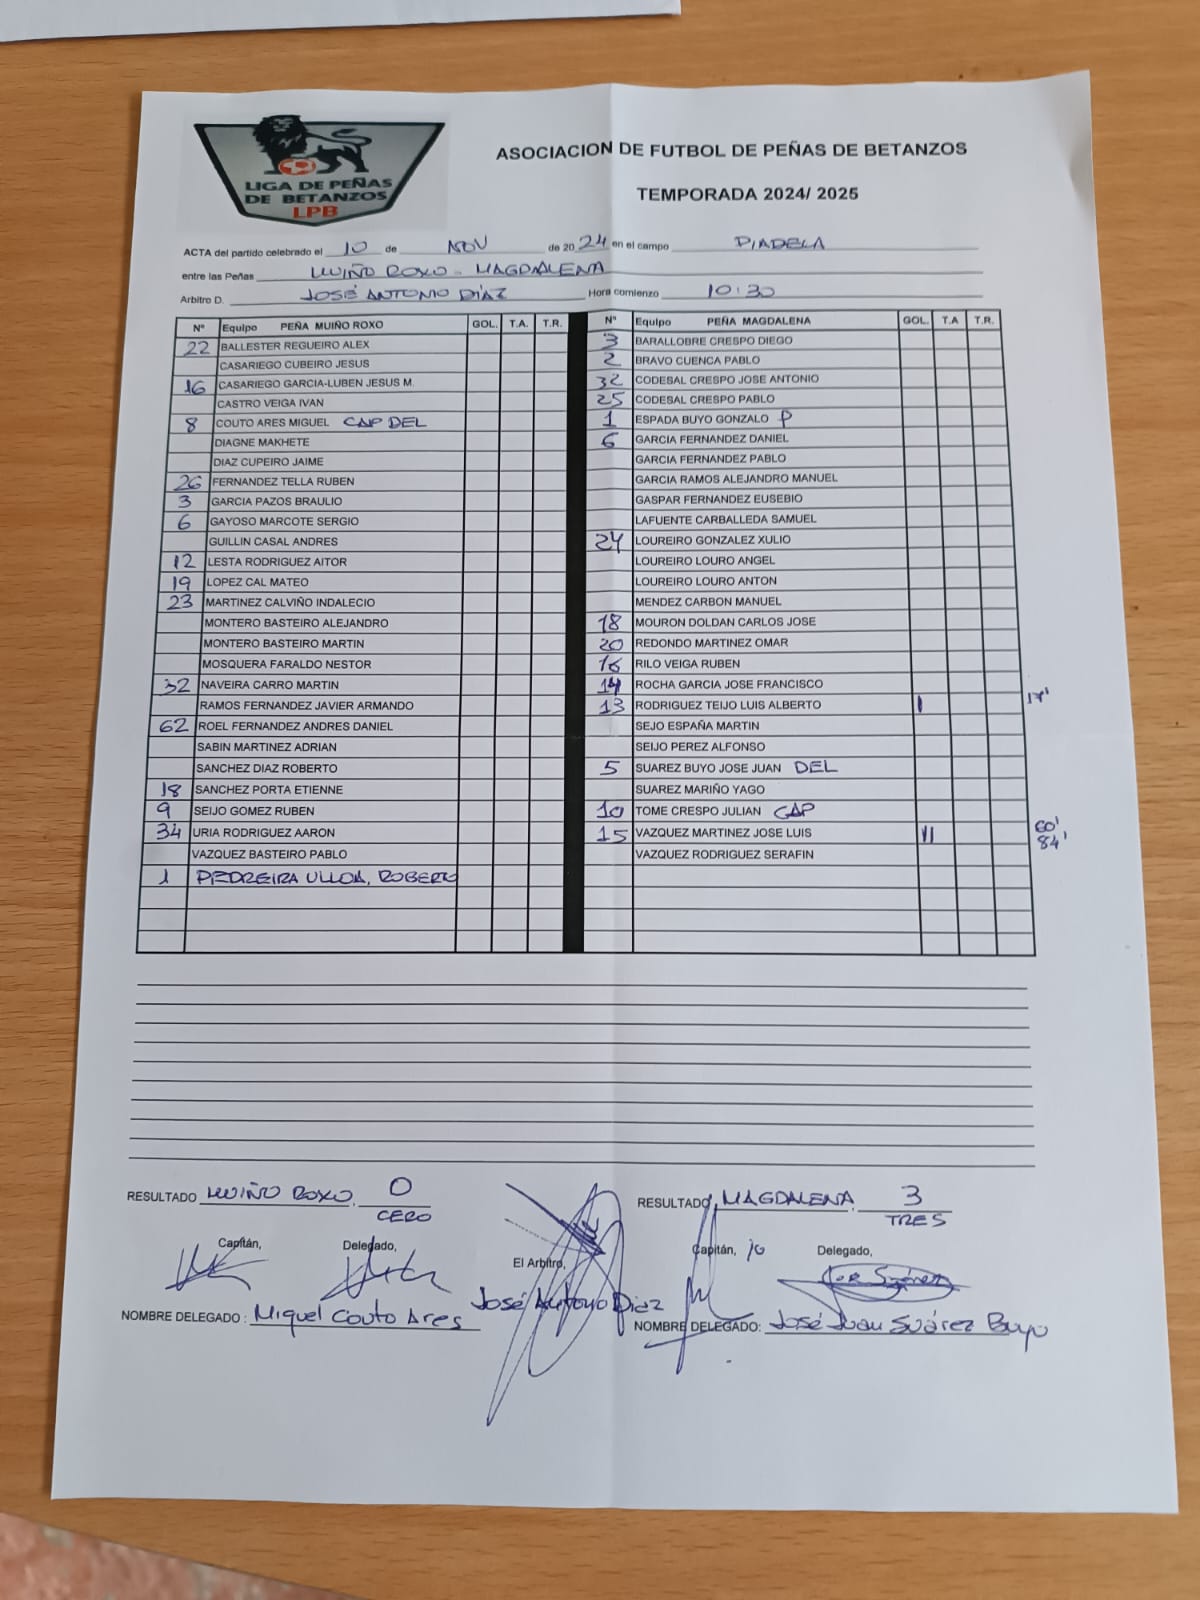 LIGA DE PEÑAS
DE BETANZOS
LPB
ASOCIACION DE FUTBOL DE PEÑAS DE BETANZOS
TEMPORADA 2024/ 2025
ACTA del partido celebrado el 10 de NOV de 2024 en el campo PIADELA
entre las Peñas MUIÑO ROXO - MAGDALENA
Arbitro D. JOSÉ ANTONIO DÍAZ Hora comienzo 10:30
Nº Equipo PEÑA MUIÑO ROXO GOL. T.A. T.R.
22 BALLESTER REGUEIRO ALEX
CASARIEGO CUBEIRO JESUS
16 CASARIEGO GARCIA-LUBEN JESUS M.
CASTRO VEIGA IVAN
8 COUTO ARES MIGUEL CAP DEL
DIAGNE MAKHETE
DIAZ CUPEIRO JAIME
26 FERNANDEZ TELLA RUBEN
3 GARCIA PAZOS BRAULIO
6 GAYOSO MARCOTE SERGIO
GUILLIN CASAL ANDRES
12 LESTA RODRIGUEZ AITOR
19 LOPEZ CAL MATEO
23 MARTINEZ CALVIÑO INDALECIO
MONTERO BASTEIRO ALEJANDRO
MONTERO BASTEIRO MARTIN
MOSQUERA FARALDO NESTOR
32 NAVEIRA CARRO MARTIN
RAMOS FERNANDEZ JAVIER ARMANDO
62 ROEL FERNANDEZ ANDRES DANIEL
SABIN MARTINEZ ADRIAN
SANCHEZ DIAZ ROBERTO
18 SANCHEZ PORTA ETIENNE
9 SEIJO GOMEZ RUBEN
34 URIA RODRIGUEZ AARON
VAZQUEZ BASTEIRO PABLO
1 PEDREIRA ULLOA, ROBERTO
Nº Equipo PEÑA MAGDALENA GOL. T.A T.R.
3 BARALLOBRE CRESPO DIEGO
2 BRAVO CUENCA PABLO
32 CODESAL CRESPO JOSE ANTONIO
25 CODESAL CRESPO PABLO
1 ESPADA BUYO GONZALO P
6 GARCIA FERNANDEZ DANIEL
GARCIA FERNANDEZ PABLO
GARCIA RAMOS ALEJANDRO MANUEL
GASPAR FERNANDEZ EUSEBIO
LAFUENTE CARBALLEDA SAMUEL
24 LOUREIRO GONZALEZ XULIO
LOUREIRO LOURO ANGEL
LOUREIRO LOURO ANTON
MENDEZ CARBON MANUEL
18 MOURON DOLDAN CARLOS JOSE
20 REDONDO MARTINEZ OMAR
16 RILO VEIGA RUBEN
14 ROCHA GARCIA JOSE FRANCISCO
13 RODRIGUEZ TEIJO LUIS ALBERTO I 17'
SEJO ESPAÑA MARTIN
SEIJO PEREZ ALFONSO
5 SUAREZ BUYO JOSE JUAN DEL
SUAREZ MARIÑO YAGO
10 TOME CRESPO JULIAN CAP
15 VAZQUEZ MARTINEZ JOSE LUIS II 60'
84'
VAZQUEZ RODRIGUEZ SERAFIN
RESULTADO MUIÑO ROXO, 0
CERO
RESULTADO MAGDALENA, 3
TRES
Capitán, Delegado, El Arbitro, Capitán, 10 Delegado,
José Antonio Diaz
NOMBRE DELEGADO: Miguel Couto Ares
NOMBRE DELEGADO: José Juan Suárez Buyo